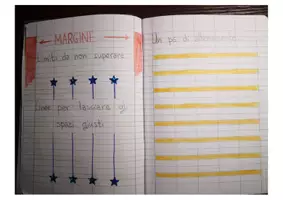 MARGINE
Limite da non superare
Linee per lasciare gli
spazi giusti
Un pò di allenamento